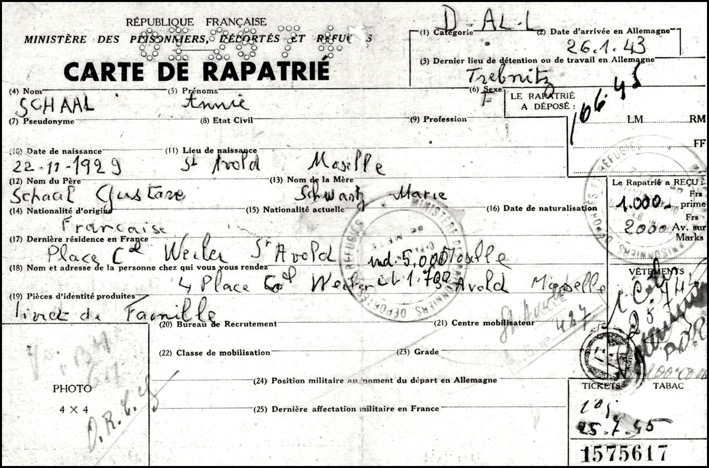 RÉPUBLIQUE FRANÇAISE
MINISTÈRE DES PRISONNIERS, DÉPORTÉS ET RÉFUGIÉS
CARTE DE RAPATRIÉ
D-AL-L
(1) Catégorie
(2) Date d'arrivée en Allemagne
26.1.43
(3) Dernier lieu de détention ou de travail en Allemagne
Trebnitz
(4) Nom
(5) Prénoms
(6) Sexe
SCHAAL Annie F
LE RAPATRIÉ
A DÉPOSÉ :
LM RM
FF
(7) Pseudonyme
(8) Etat Civil
(9) Profession
(10) Date de naissance
(11) Lieu de naissance
22-11-1929 St Avold Moselle
(12) Nom du Père
(13) Nom de la Mère
Schaal Gustave Schwartz Marie
(14) Nationalité d'origine
(15) Nationalité actuelle
(16) Date de naturalisation
Francaise
Le Rapatrié a REÇU :
1.000 Frs prime
2000 Frs Av. sur Marks
(17) Dernière résidence en France
Place Cel Weiler St Avold Moselle
ind. 5,000
(18) Nom et adresse de la personne chez qui vous vous rendez
4 Place Col Weiler St Avold Moselle
1.700
(19) Pièces d'identité produites
Livret de Famille
VÊTEMENTS
(20) Bureau de Recrutement
(21) Centre mobilisateur
St Avold
487
(22) Classe de mobilisation
(23) Grade
(24) Position militaire au moment du départ en Allemagne
(25) Dernière affectation militaire en France
PHOTO
4 × 4
TICKETS TABAC
25.7.45
1575617